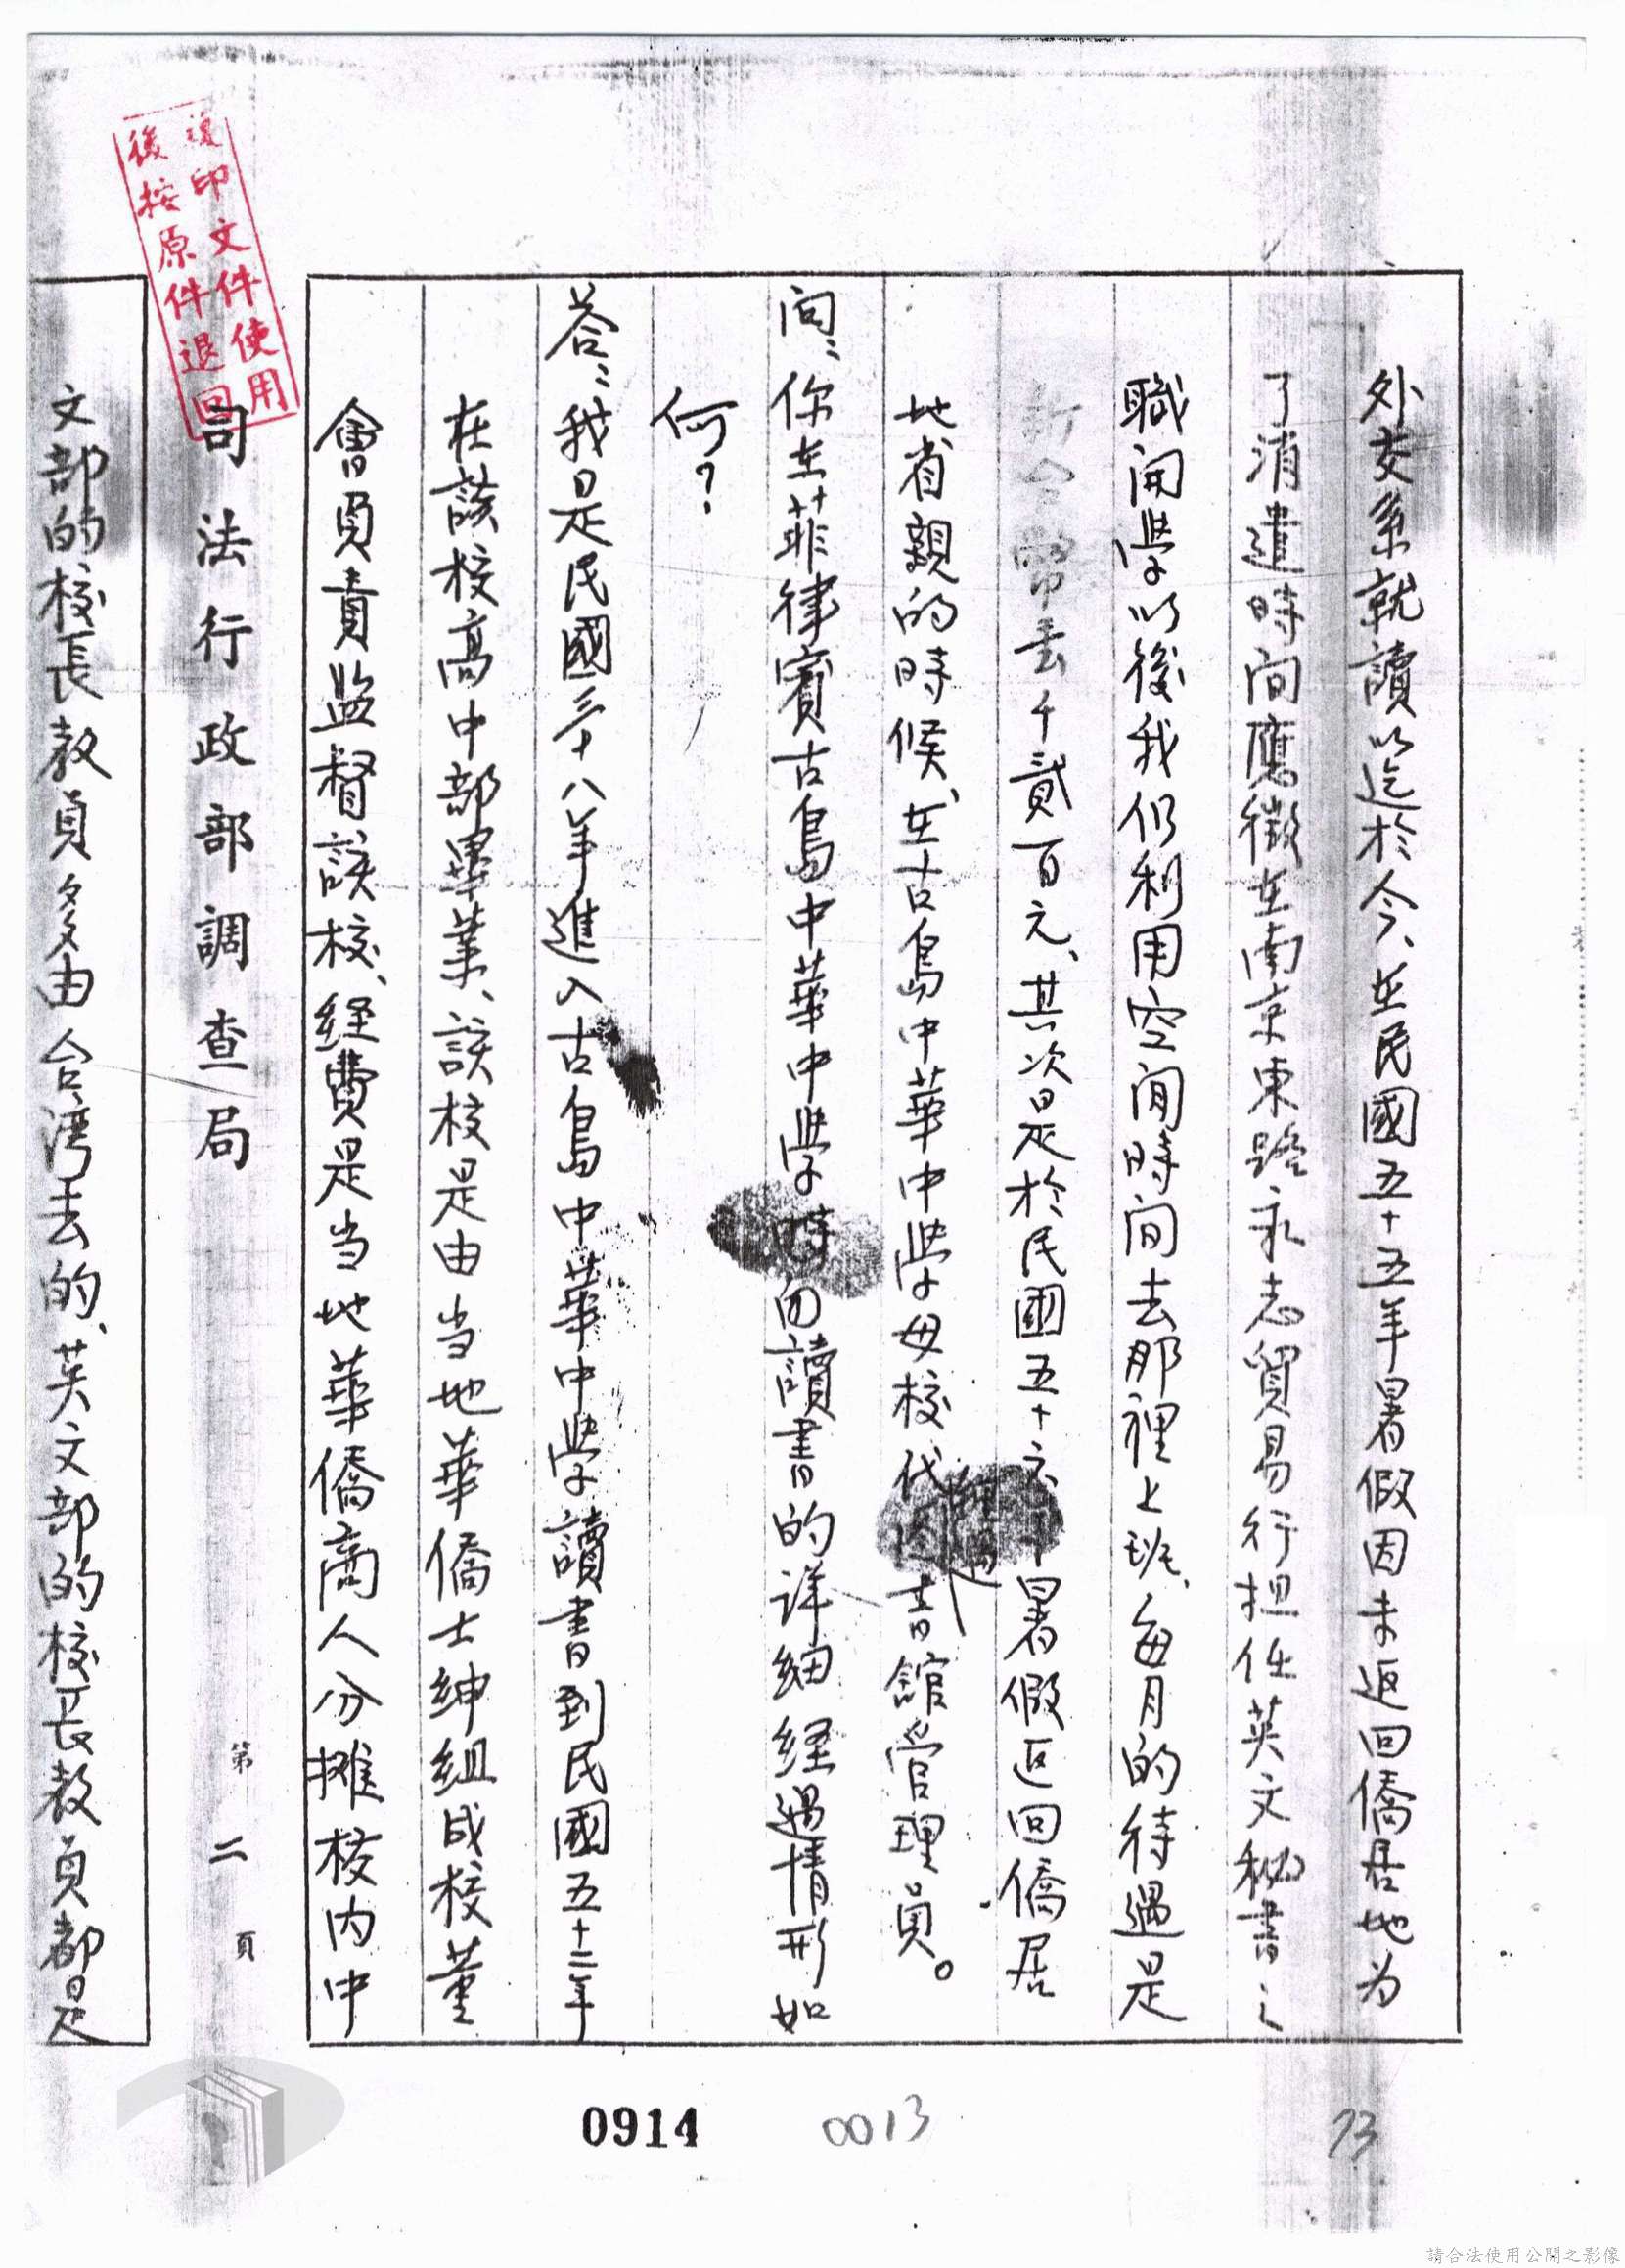 外交系就讀以迄於今、在民國五十五年暑假因未返回僑居地为
了消遣時间應徵在南京東路永志貿易行担任英文秘書之
職開学以後我仍利用空閒時间去那裡上班、每月的待遇是
新台幣壹千貳百元、其次是於民國五十六年暑假返回僑居
地省親的時候、在古島中華中学母校代理圖書館管理員。
问：你在菲律賓古島中華中学時的讀書的详細経過情形如
何？
答：我是民國三十八年進入古島中華中学讀書到民國五十二年
在該校高中部畢業、該校是由当地華僑士紳組成校董
會負責監督該校、経費是当地華僑商人分摊校内中
司法行政部調查局
第二頁
文部的校長教員多由台湾去的、英文部的校長教員都是
複印文件使用
後按原件退回
0914
0013
73
請合法使用公開之影像